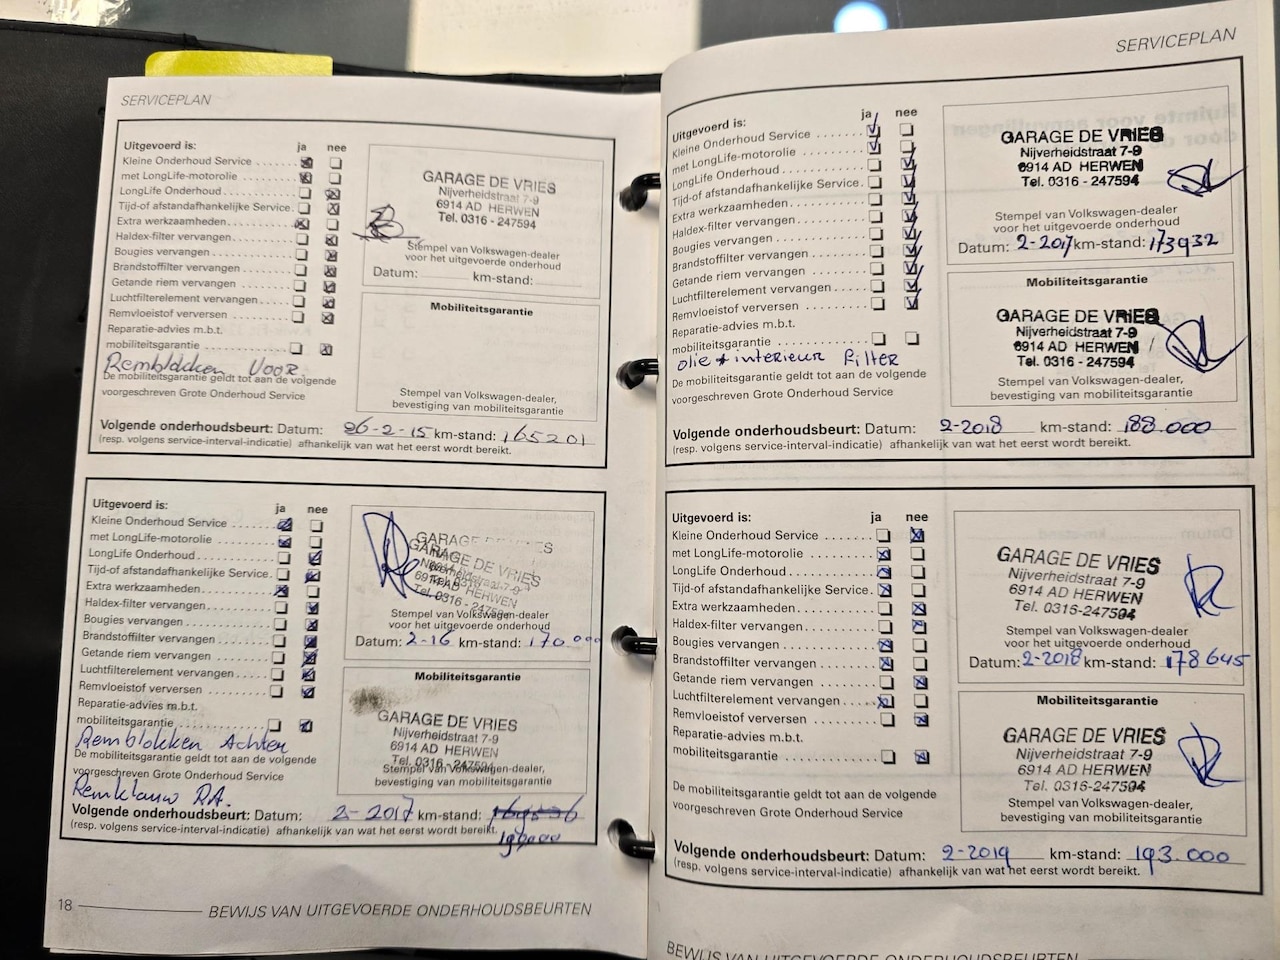 SERVICEPLAN
Uitgevoerd is: ja nee
Kleine Onderhoud Service
met LongLife-motorolie
LongLife Onderhoud
Tijd-of afstandafhankelijke Service
Extra werkzaamheden
Haldex-filter vervangen
Bougies vervangen
Brandstoffilter vervangen
Getande riem vervangen
Luchtfilterelement vervangen
Remvloeistof verversen
Reparatie-advies m.b.t.
mobiliteitsgarantie
Remblokken Voor
De mobiliteitsgarantie geldt tot aan de volgende
voorgeschreven Grote Onderhoud Service
GARAGE DE VRIES
Nijverheidstraat 7-9
6914 AD HERWEN
Tel. 0316 - 247594
Stempel van Volkswagen-dealer
voor het uitgevoerde onderhoud
Datum: km-stand:
Mobiliteitsgarantie
Stempel van Volkswagen-dealer,
bevestiging van mobiliteitsgarantie
Volgende onderhoudsbeurt: Datum: 26-2-15 km-stand: 165201
(resp. volgens service-interval-indicatie) afhankelijk van wat het eerst wordt bereikt.
Uitgevoerd is: ja nee
Kleine Onderhoud Service
met LongLife-motorolie
LongLife Onderhoud
Tijd-of afstandafhankelijke Service
Extra werkzaamheden
Haldex-filter vervangen
Bougies vervangen
Brandstoffilter vervangen
Getande riem vervangen
Luchtfilterelement vervangen
Remvloeistof verversen
Reparatie-advies m.b.t.
mobiliteitsgarantie
Remblokken Achter
De mobiliteitsgarantie geldt tot aan de volgende
voorgeschreven Grote Onderhoud Service
Remklauw R.A.
GARAGE DE VRIES
GARAGE DE VRIES
Nijverheidstraat 7-9
6914 AD HERWEN
Tel. 0316 - 247594
Stempel van Volkswagen-dealer
voor het uitgevoerde onderhoud
Datum: 2-16 km-stand: 170.000
Mobiliteitsgarantie
GARAGE DE VRIES
Nijverheidstraat 7-9
6914 AD HERWEN
Tel. 0316 - 247594
Stempel van Volkswagen-dealer,
bevestiging van mobiliteitsgarantie
Volgende onderhoudsbeurt: Datum: 2-2017 km-stand:
(resp. volgens service-interval-indicatie) afhankelijk van wat het eerst wordt bereikt.
18 BEWIJS VAN UITGEVOERDE ONDERHOUDSBEURTEN
SERVICEPLAN
Uitgevoerd is: ja nee
Kleine Onderhoud Service
met LongLife-motorolie
LongLife Onderhoud
Tijd-of afstandafhankelijke Service
Extra werkzaamheden
Haldex-filter vervangen
Bougies vervangen
Brandstoffilter vervangen
Getande riem vervangen
Luchtfilterelement vervangen
Remvloeistof verversen
Reparatie-advies m.b.t.
mobiliteitsgarantie
olie + interieur filter
De mobiliteitsgarantie geldt tot aan de volgende
voorgeschreven Grote Onderhoud Service
GARAGE DE VRIES
Nijverheidstraat 7-9
6914 AD HERWEN
Tel. 0316 - 247594
Stempel van Volkswagen-dealer
voor het uitgevoerde onderhoud
Datum: 2-2017 km-stand: 173932
Mobiliteitsgarantie
GARAGE DE VRIES
Nijverheidstraat 7-9
6914 AD HERWEN
Tel. 0316 - 247594
Stempel van Volkswagen-dealer,
bevestiging van mobiliteitsgarantie
Volgende onderhoudsbeurt: Datum: 2-2018 km-stand: 188.000
(resp. volgens service-interval-indicatie) afhankelijk van wat het eerst wordt bereikt.
Uitgevoerd is: ja nee
Kleine Onderhoud Service
met LongLife-motorolie
LongLife Onderhoud
Tijd-of afstandafhankelijke Service
Extra werkzaamheden
Haldex-filter vervangen
Bougies vervangen
Brandstoffilter vervangen
Getande riem vervangen
Luchtfilterelement vervangen
Remvloeistof verversen
Reparatie-advies m.b.t.
mobiliteitsgarantie
De mobiliteitsgarantie geldt tot aan de volgende
voorgeschreven Grote Onderhoud Service
GARAGE DE VRIES
Nijverheidstraat 7-9
6914 AD HERWEN
Tel. 0316-247594
Stempel van Volkswagen-dealer
voor het uitgevoerde onderhoud
Datum: 2-2018 km-stand: 178645
Mobiliteitsgarantie
GARAGE DE VRIES
Nijverheidstraat 7-9
6914 AD HERWEN
Tel. 0316-247594
Stempel van Volkswagen-dealer,
bevestiging van mobiliteitsgarantie
Volgende onderhoudsbeurt: Datum: 2-2019 km-stand: 193.000
(resp. volgens service-interval-indicatie) afhankelijk van wat het eerst wordt bereikt.
BEWIJS VAN UITGEVOERDE ONDERHOUDSBEURTEN